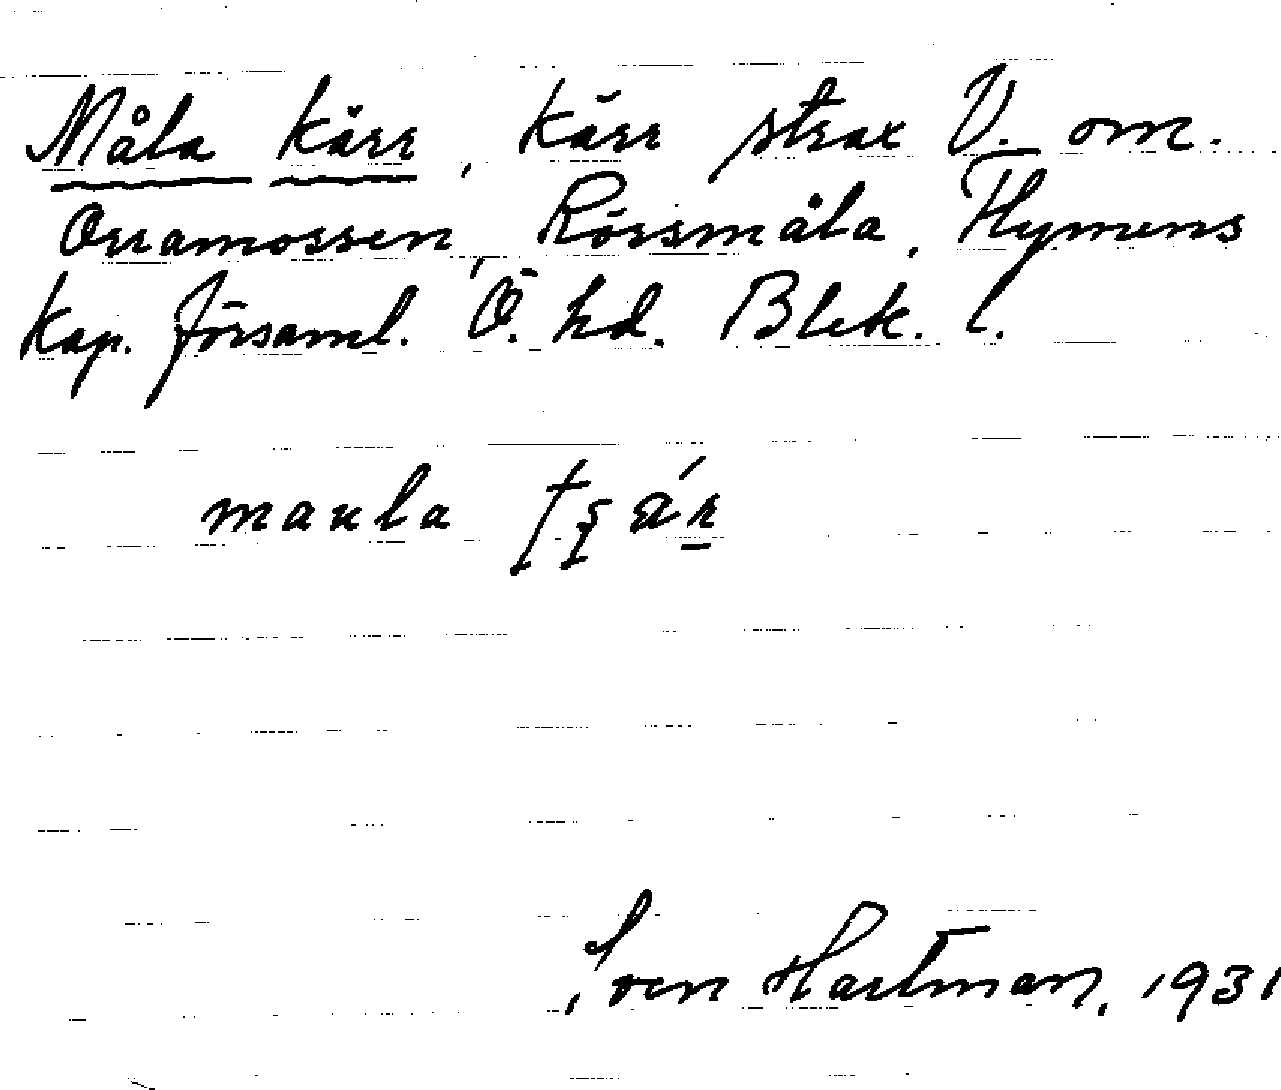 Måla kärr, kärr strax V. om.
Orramossen, Rörsmåla, Flymens
kap. församl. Ö. hd. Blek. l.
maula
Sven Hartman, 1931